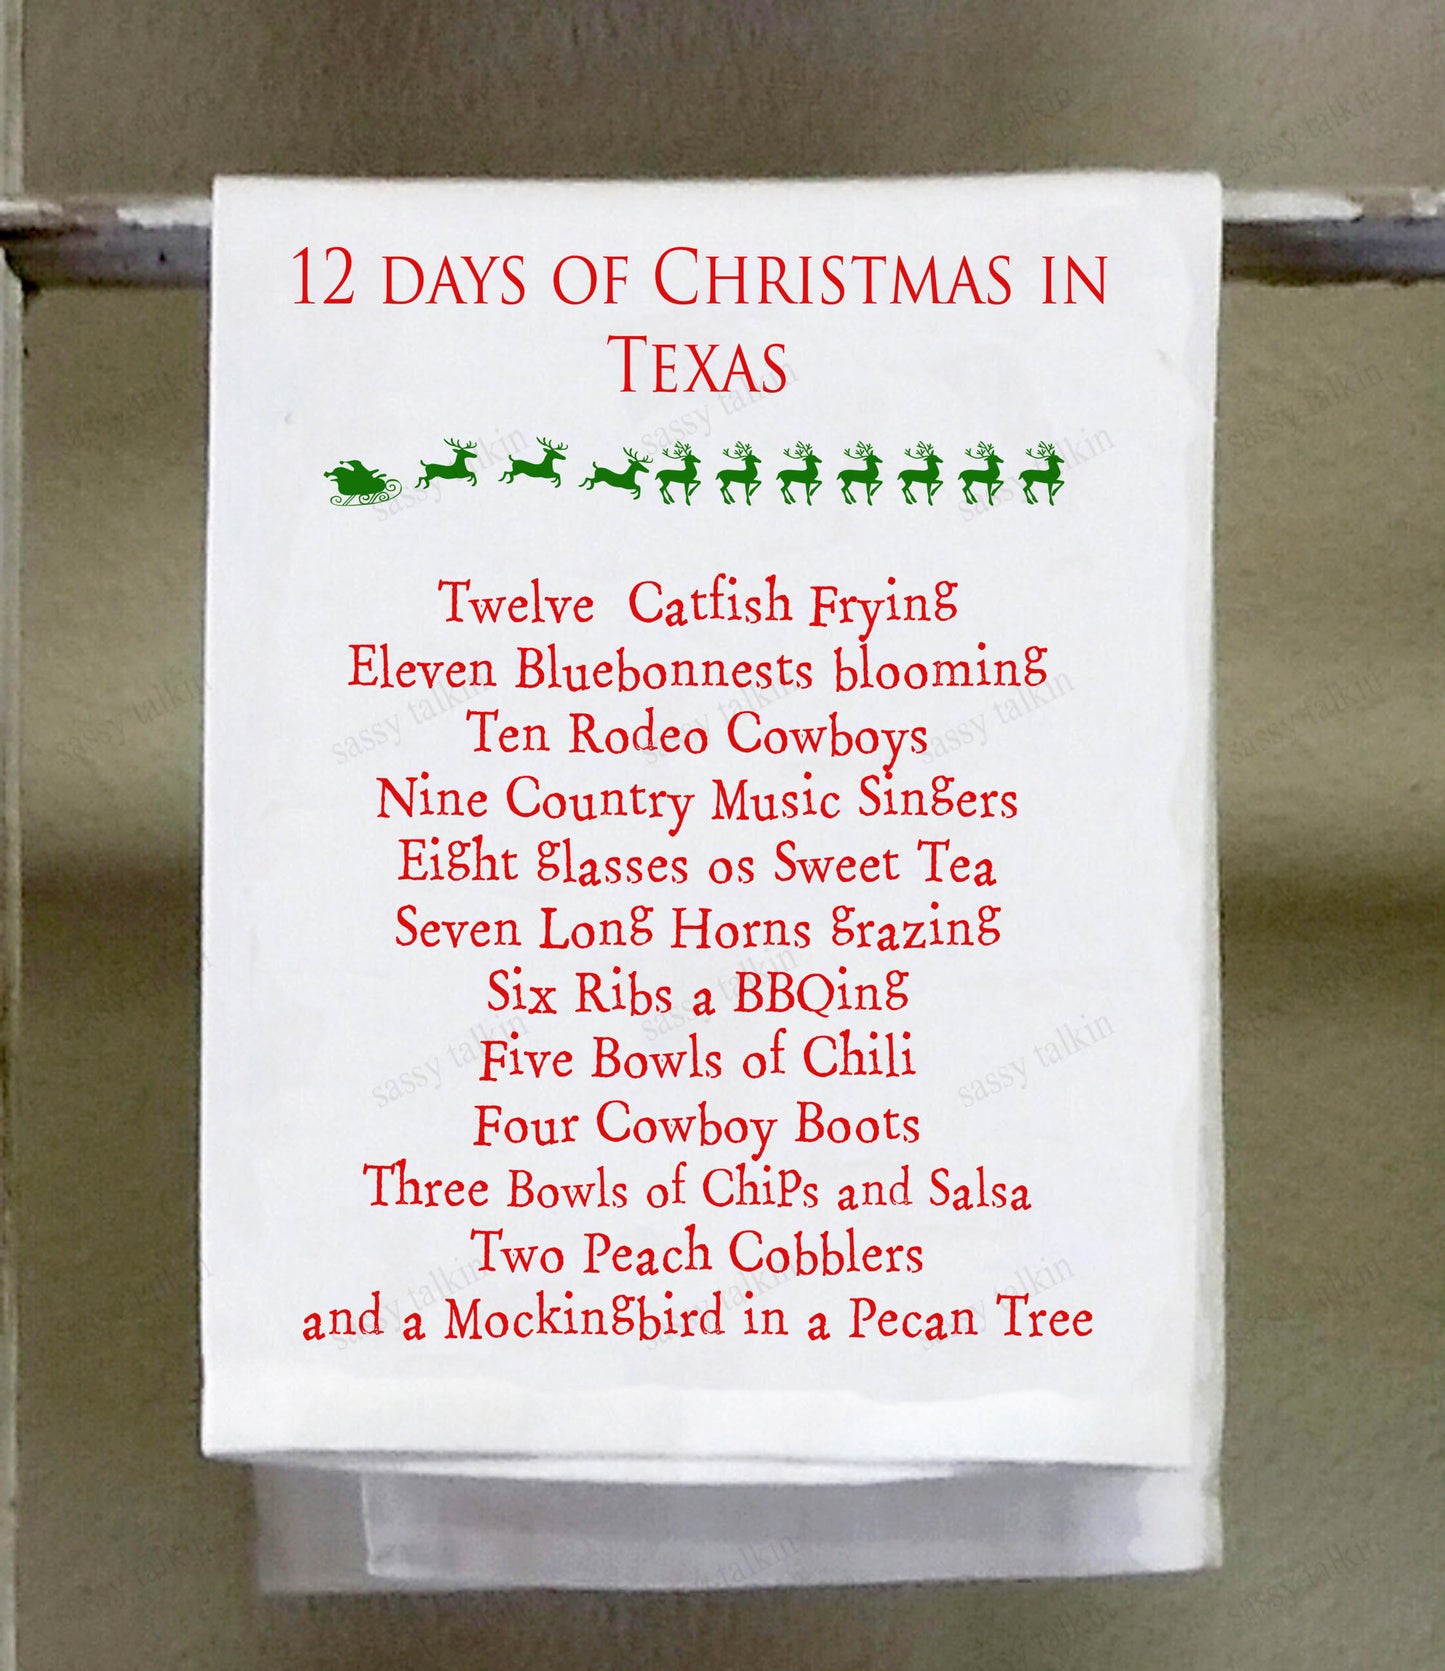 12 days of Christmas in
Texas
Twelve Catfish Frying
Eleven Bluebonnests blooming
Ten Rodeo Cowboys
Nine Country Music Singers
Eight glasses os Sweet Tea
Seven Long Horns grazing
Six Ribs a BBQing
Five Bowls of Chili
Four Cowboy Boots
Three Bowls of Chips and Salsa
Two Peach Cobblers
and a Mockingbird in a Pecan Tree
sassy talkin